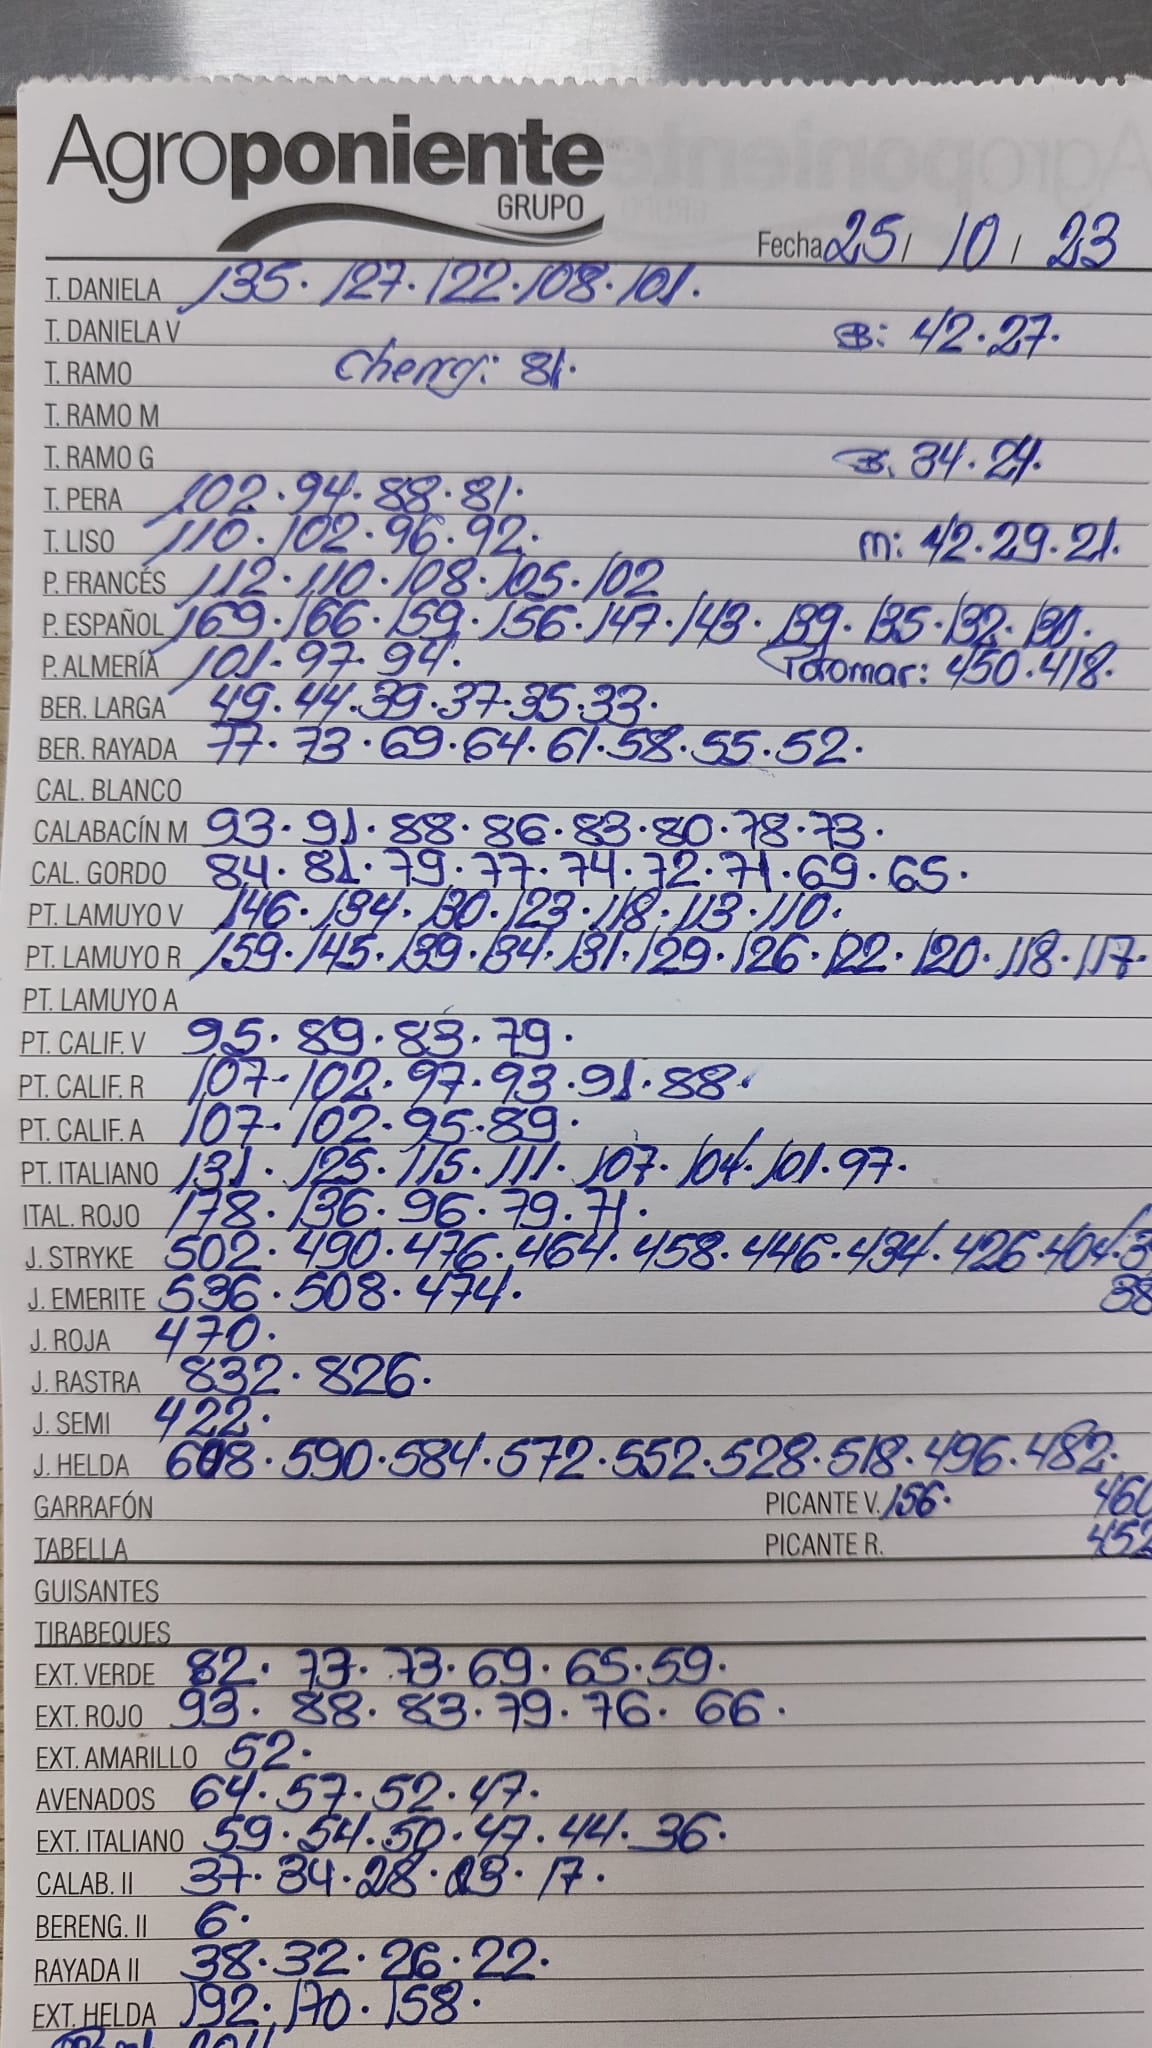 Agroponiente
GRUPO
Fecha 25 / 10 / 23
T. DANIELA 135. 127. 122. 108. 101.
T. DANIELA V B: 42. 27.
T. RAMO Cherry: 81.
T. RAMO M
T. RAMO G B. 34. 24.
T. PERA 102. 94. 88. 81.
T. LISO 110. 102. 96. 92. m: 42. 29. 21.
P. FRANCÉS 112. 110. 108. 105. 102
P. ESPAÑOL 169. 166. 159. 156. 147. 143. 139. 135. 132. 130.
P. ALMERÍA 101. 97. 94. 450. 418.
BER. LARGA 49. 44. 39. 37. 35. 33.
BER. RAYADA 77. 73. 69. 64. 61. 58. 55. 52.
CAL. BLANCO
CALABACÍN M 93. 91. 88. 86. 83. 80. 78. 73.
CAL. GORDO 84. 81. 79. 77. 74. 72. 71. 69. 65.
PT. LAMUYO V 146. 134. 130. 123. 118. 113. 110.
PT. LAMUYO R 159. 145. 139. 134. 131. 129. 126. 122. 120. 118. 117.
PT. LAMUYO A
PT. CALIF. V 95. 89. 83. 79.
PT. CALIF. R 107. 102. 97. 93. 91. 88.
PT. CALIF. A 107. 102. 95. 89.
PT. ITALIANO 131. 125. 115. 111. 107. 104. 101. 97.
ITAL. ROJO 178. 136. 96. 79. 71.
J. STRYKE 502. 490. 476. 464. 458. 446. 434. 426. 404.
J. EMERITE 536. 508. 474.
J. ROJA 470.
J. RASTRA 832. 826.
J. SEMI 422.
J. HELDA 608. 590. 584. 572. 552. 528. 518. 496. 482.
GARRAFÓN PICANTE V. 156. 460
TABELLA PICANTE R. 452
GUISANTES
TIRABEQUES
EXT. VERDE 82. 77. 73. 69. 65. 59.
EXT. ROJO 93. 88. 83. 79. 76. 66.
EXT. AMARILLO 52.
AVENADOS 64. 57. 52. 47.
EXT. ITALIANO 59. 54. 50. 47. 44. 36.
CALAB. II 37. 34. 28. 23. 17.
BERENG. II 6.
RAYADA II 38. 32. 26. 22.
EXT. HELDA 192. 170. 158.